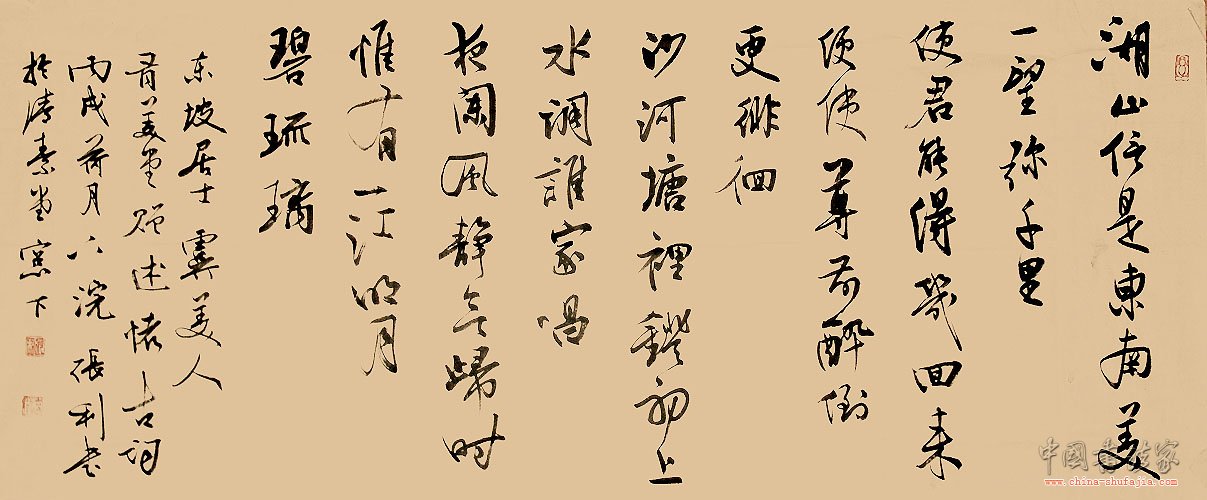 湖山信是東南美
一望弥千里
使君能得幾回来
便使尊前醉倒
更徘徊
沙河塘裡鐙初上
水調誰家唱
夜闌風静欲歸時
惟有一江明月
碧琉璃
东坡居士 虞美人
有美堂贈述懷古词
丙戌荷月下浣 張利书
於素堂窓下
中国书法家
www.china-shufajia.com